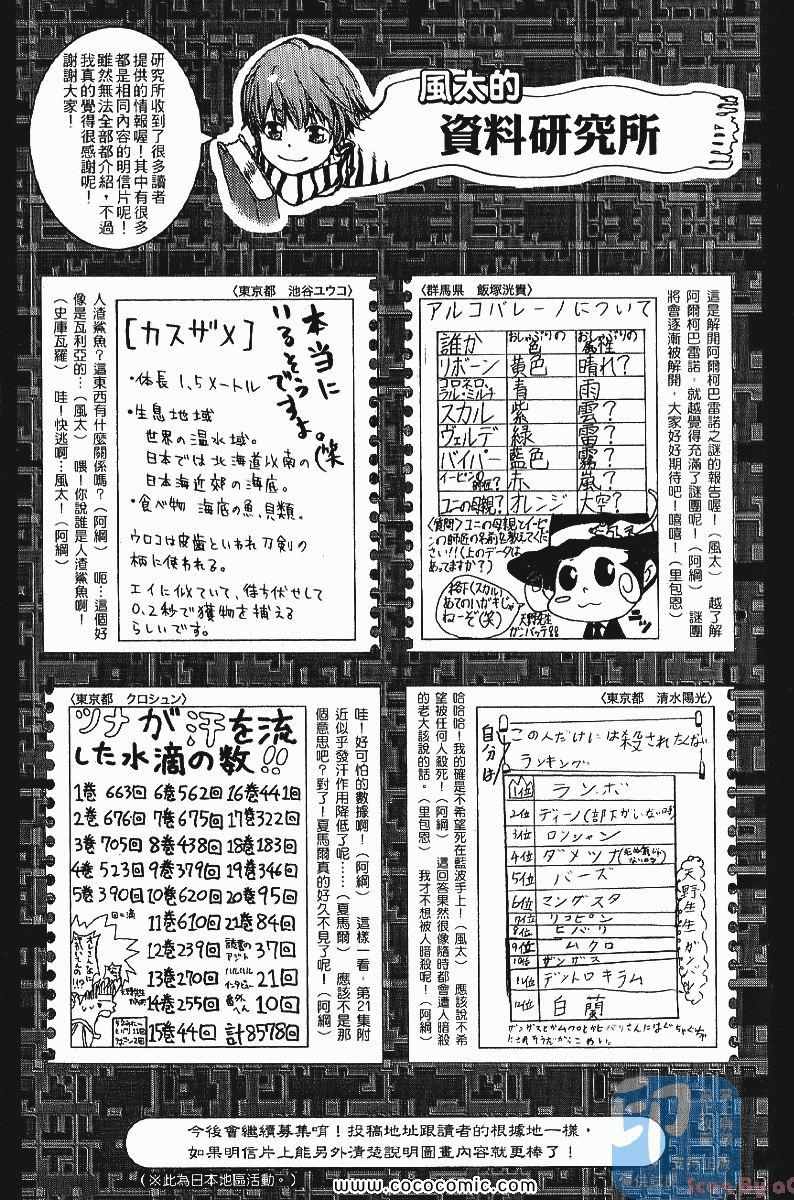 風太的
資料研究所
研究所收到了很多讀者
提供的情報喔！其中有很多
都是相同內容的明信片呢！
雖然無法全部都介紹，不過
我真的覺得很感謝呢！
謝謝大家！
〈群馬県　飯塚洸貴〉
アルコバレーノについて
誰か　おしゃぶりの色　おしゃぶりの属性
リボーン　黄色　晴れ？
コロネロ、ラル・ミルチ　青　雨
スカル　紫　雲？
ヴェルデ　緑　雷？
バイパー　藍色　霧？
イーピンの師匠？　赤　嵐？
ユニの母親？　オレンジ　大空？
〈質問〉ユニの母親とイーピン
の師匠の名前を教えてくだ
さい！！(上のデータは
あってますか？)
格下(スカル)
あてのハガキじゃ
ねーぞ(笑)
天野先生
ガンバッテ
這是解開阿爾柯巴雷諾之謎的報告喔！（風太）　越了解
阿爾柯巴雷諾，就越覺得充滿了謎團呢！（阿綱）　謎團
將會逐漸被解開，大家好好期待吧！嘻嘻！（里包恩）
〈東京都　池谷ユウコ〉
本当に
いるそうですよ。(笑)
［カスザメ］
・体長 1.5メートル
・生息地域
世界の温水域。
日本では北海道以南の
日本海近郊の海底。
・食べ物　海底の魚、貝類。
ウロコは皮歯といわれ刀剣の
柄に使われる。
エイに似ていて、待ち伏せして
0.2秒で獲物を捕える
らしいです。
人渣鯊魚？這東西有什麼關係嗎？（阿綱）　呃…這個好
像是瓦利亞的…（風太）　喂！你說誰是人渣鯊魚啊！
（史庫瓦羅）　哇！快逃啊…風太！（阿綱）
〈東京都　清水陽光〉
自分は
この人だけには殺されたくない
ランキング
1位　ランボ
2位　ディーノ(部下がいない時)
3位　ロンシャン
4位　ダメツナ(死ぬ気じゃないツナ)
5位　バーズ
6位　マングスタ
7位　リコピン
8位　ヒバリ
9位　ムクロ
10位　ザンザス
11位　デンドロキラム
12位　白蘭
天野先生ガンバレ
哈哈哈！我的確是不希望死在藍波手上！（風太）　應該說不希
望被任何人殺死！（阿綱）　這回答果然很像隨時都會遭人暗殺
的老大該說的話。（里包恩）　我才不想被人暗殺呢！（阿綱）
〈東京都　クロシュン〉
ツナが汗を流
した水滴の数！！
1巻 663回　6巻 562回　16巻 441回
2巻 676回　7巻 675回　17巻 322回
3巻 705回　8巻 438回　18巻 183回
4巻 523回　9巻 379回　19巻 346回
5巻 390回　10巻 620回　20巻 95回
11巻 610回　21巻 84回
12巻 239回　37回
13巻 270回　ハルハルインタビュー 21回
14巻 255回　番外へん 10回
15巻 44回　計 8578回
哇！好可怕的數據啊！（阿綱）　這樣一看，第21集附
近似乎發汗作用降低了呢……（夏馬爾）　應該不是那
個意思吧？對了！夏馬爾真的好久不見了呢！（阿綱）
今後會繼續募集唷！投稿地址跟讀者的根據地一樣，
如果明信片上能另外清楚說明圖畫內容就更棒了！
（※此為日本地區活動。）
www.cococomic.com
印